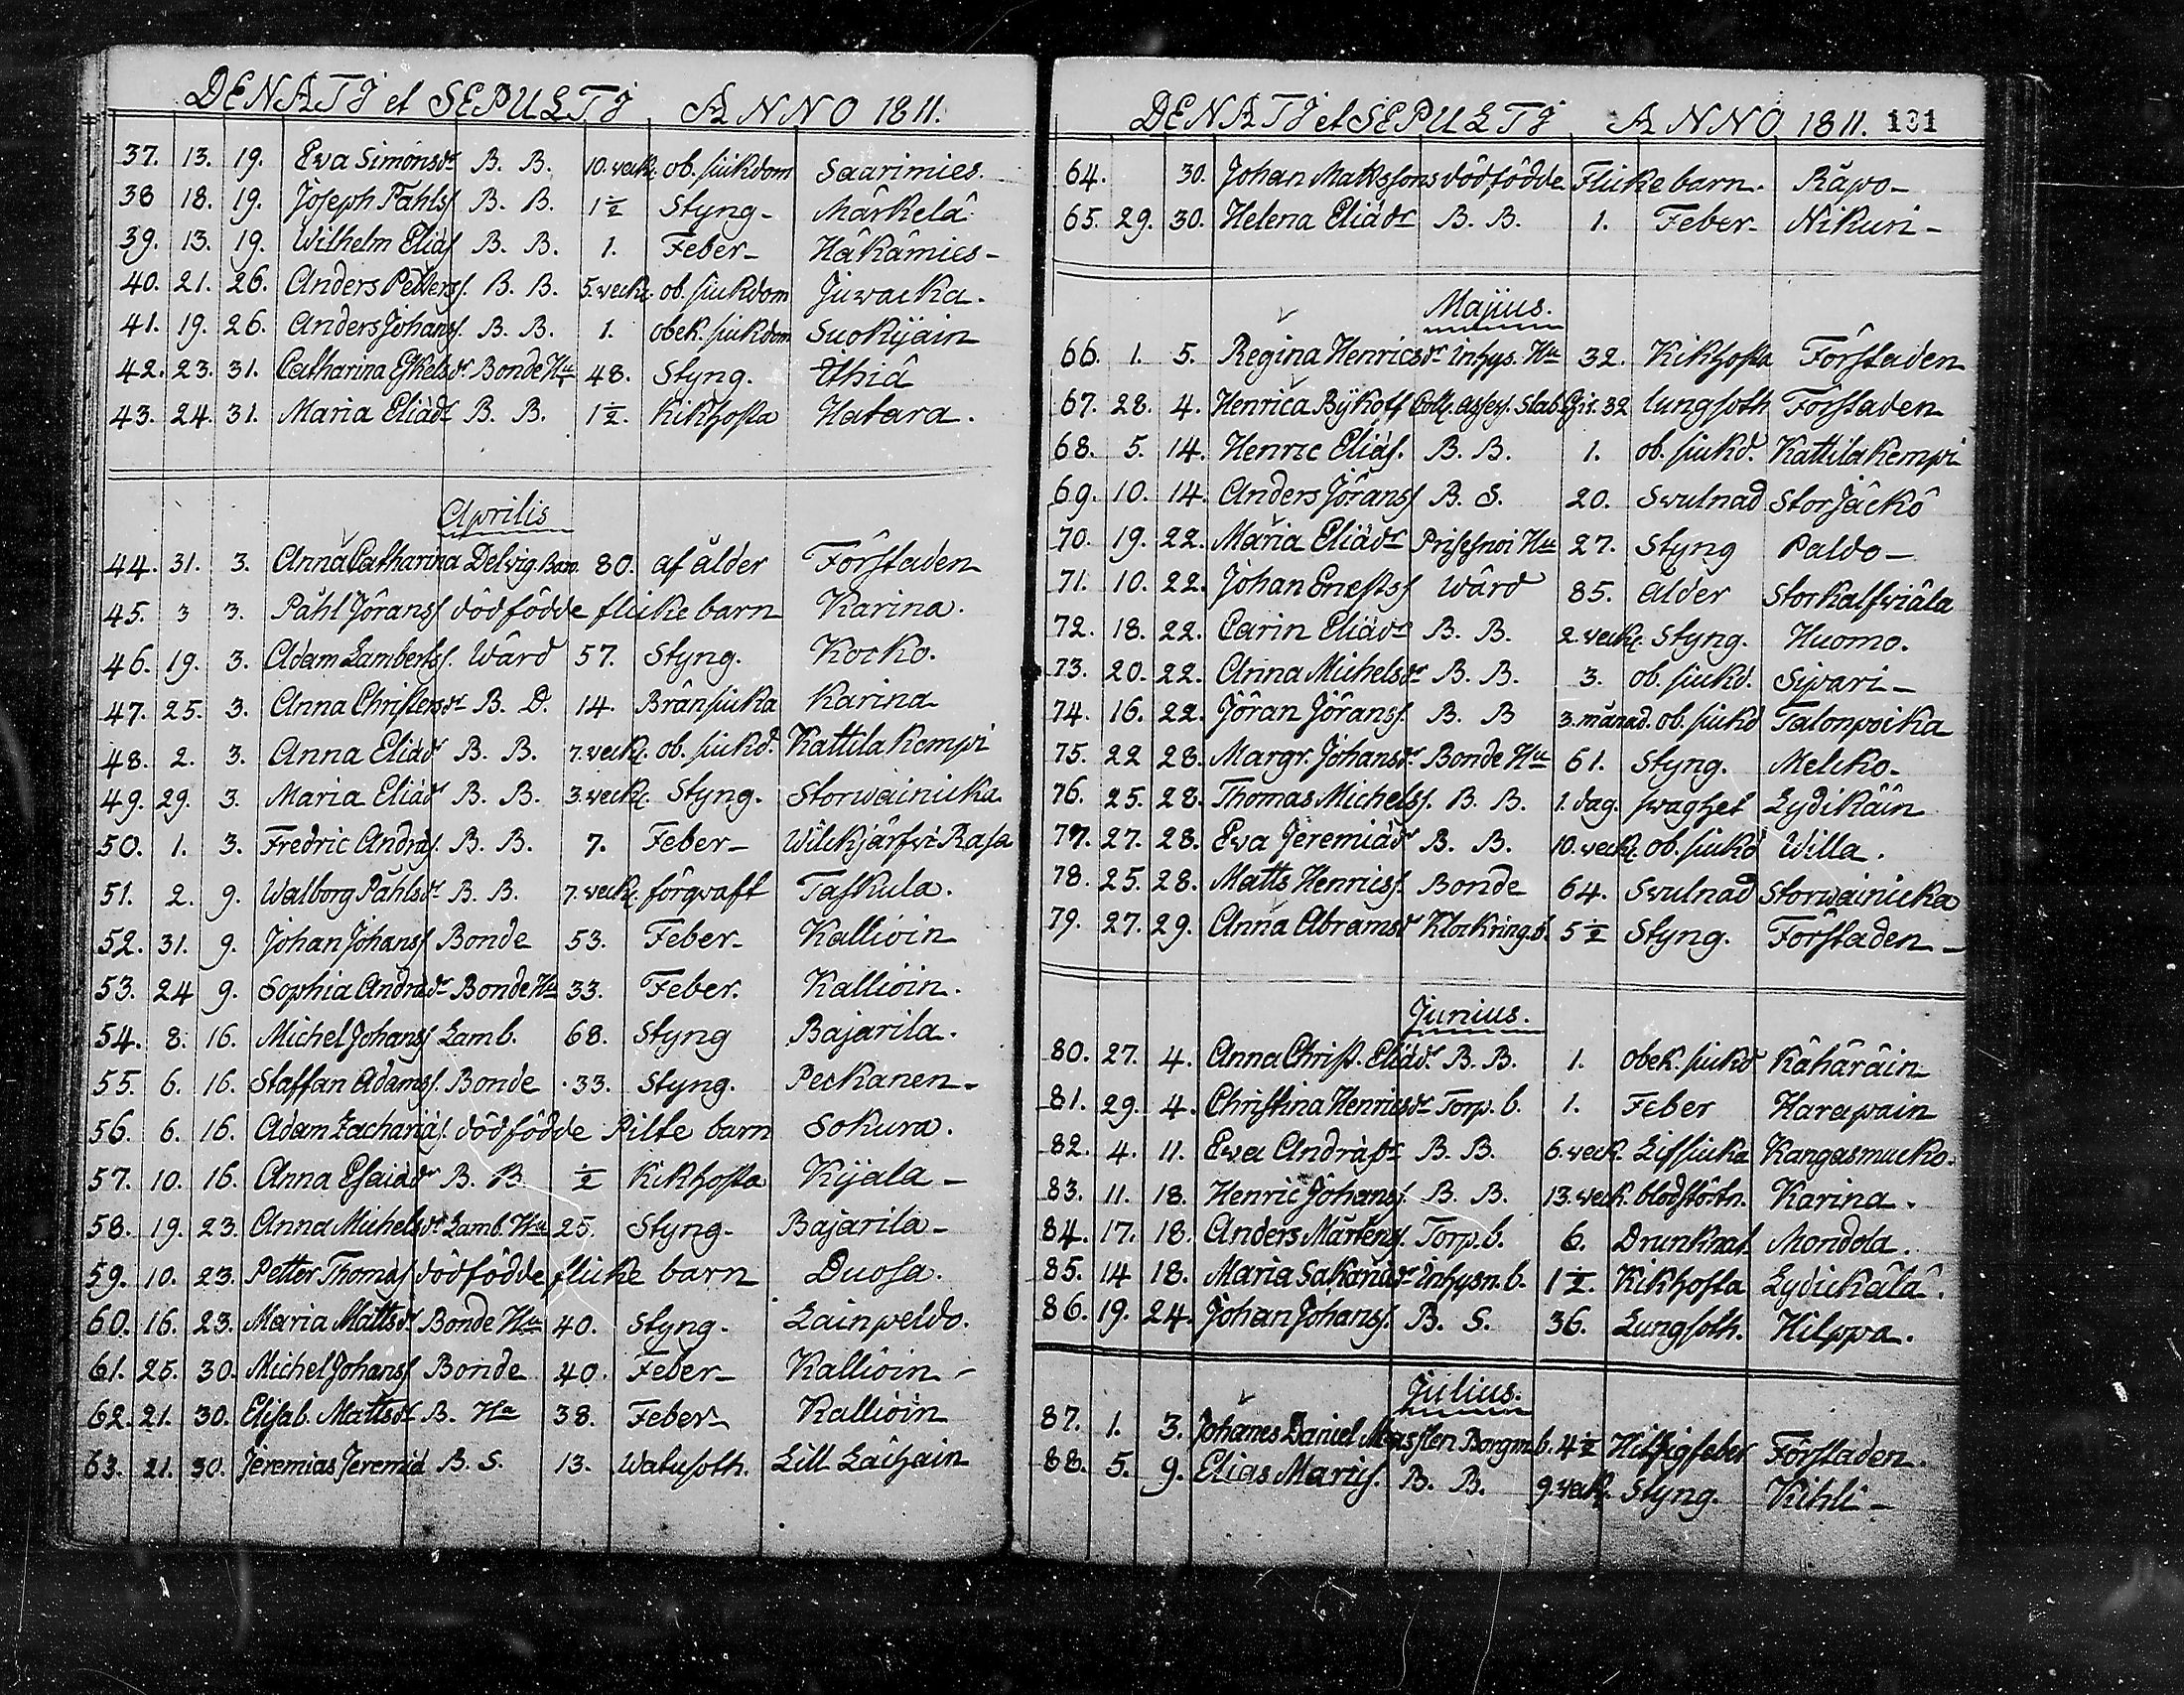 DENATJ et SEPULTJ ANNO 1811.
37. 13. 19. Eva Simonsdr B. B. 10. veck. ob. siukdom Saarimies.
38 18. 19. Joseph Påhlss B. B. 1½ Styng- Märkelä
39. 13. 19. Wilhelm Eliæs B. B. 1. Feber- Häkämies-
40. 21. 26. Anders Petterss. B. B. 5. veck. ob. siukdom Juwacka.
41. 19. 26. Anders Johanss. B. B. 1. obek. siukdom Suokijain
42. 23. 31. Catharina Eskelsdr Bonde Hu 48. Styng. Ihiä
43. 24. 31. Maria Eliædr B. B. 1½. Kikhosta Hatara.
Aprilis
44. 31. 3. Anna Catharina Delvig. Baro. 80. af ålder Förstaden
45. 3 3. Påhl Jöranss dödfödde flicke barn Karina.
46. 19. 3. Adam Lambertss. Wärd 57. Styng. Kocko.
47. 25. 3. Anna Christersdr B. D. 14. Brånsiuka Karina
48. 2. 3. Anna Eliædr B. B. 7. veck. ob. siukd. Kattilakempi
49. 29. 3. Maria Eliædr B. B. 3. veck. Styng. Storwainicka
50. 1. 3. Fredric Andræs. B. B. 7. Feber- Wilckjärfvi Rasa
51. 2. 9. Walborg Påhlsdr B. B. 7. veck. förqvaft Taskula.
52. 31. 9. Johan Johanss Bonde 53. Feber- Kallioin
53. 24 9. Sophia Andrædr Bonde Hu 33. Feber. Kallioin.
54. 8. 16. Michel Johanss Lamb. 68. Styng Bajarila.
55. 6. 16. Staffan Adamss. Bonde 33. Styng. Peckanen-
56. 6. 16. Adam Zachariæs. dödfödde Pilte barn Sokura.
57. 10. 16. Anna Esaiædr B. B ½ Kikhosta Kijala-
58. 19. 23. Anna Michelsdr Lamb. Hu 25. Styng- Bajarila-
59. 10. 23. Petter Thomæs dödfödde flicke barn Duosa.
60. 16. 23. Maria Mattsdr Bonde Hu 40. Styng- Lainpeldo.
61. 25. 30. Michel Johanss Bonde 40. Feber- Kallioin-
62. 21. 30. Elisab. Mattsdr B. Hu 38. Feber- Kallioin
63. 21. 30. Jeremias Jeremiæ B. S. 13. Watusoth. Lill Laihain
DENATJ et SEPULTJ ANNO 1811. 131
64. 30. Johan Makssons dödfödde Flicke barn. Räpo-
65. 29. 30. Helena Eliædr B. B. 1. Feber- Nikuri-
Majus.
66. 1. 5. Regina Henricsdr inhys. Hu 32. Kikhosta Förstaden
67. 28. 4. Henrica Bÿkoff Coll. assess. Stab. Chir. 32 lungsoth Förstaden
68. 5. 14. Henric Eliæs. B. B. 1. ob. siukd. Kattilakempi
69. 10. 14. Anders Jöranss B. S. 20. Svulnad Storjäckö
70. 19. 22. Maria Eliædr Hu 27. Styng Paldo-
71. 10. 22. Johan Wärd 85. Alder Storkalfviäla
72. 18. 22. Carin Eliædr B. B. 2. veck. Styng. Huomo.
73. 20. 22. Anna Michelsdr B. B. 3. ob. siukd. Sipari-
74. 16. 22. Jöran Jöranss. B. B 3. månad. ob. siukd Talonpoika
75. 22 28. Margr. Johansdr Bonde Hu 61. Styng. Melcko.
76. 25. 28. Thomas Michelss. B. B. 1. dag. svaghet Lydikäin
77. 27. 28. Eva Jeremiædr B. B. 10. veck. ob. siukd Willa.
78. 25. 28. Matts Henricss. Bonde 64. Svulnad Storwainicka
79. 27. 29. Anna Abramsdr Klockring. b. 5½ Styng. Förstaden-
Junius.
80. 27. 4. Anna Christ. Eliædr B. B. 1. obek. siukd Kähäräin
81. 29. 4. Christina Henricsdr Torp. b. 1. Feber Harapain
82. 4. 11. Eva Andrædr B. B. 6. veck. Lifsiuka Kangasmucko.
83. 11. 18. Henric Johanss. B. B. 13. veck. blodstörtn. Karina.
84. 17. 18. Anders Mårtenss. Torp. b. 6. Drunknat Mondola.
85. 14 18. Maria Sakariædr Inhysn. b. 1½. Kikhosta Lydickälä.
86. 19. 24. Johan Johanss. B. S. 36. Lungsoth. Hilppa.
Julius.
87. 1. 3. Johanes Daniel Borgm. b. 4½ Hitsigfeber Förstaden.
88. 5. 9. Elias B. B. 9. veck. Styng. Kihli-